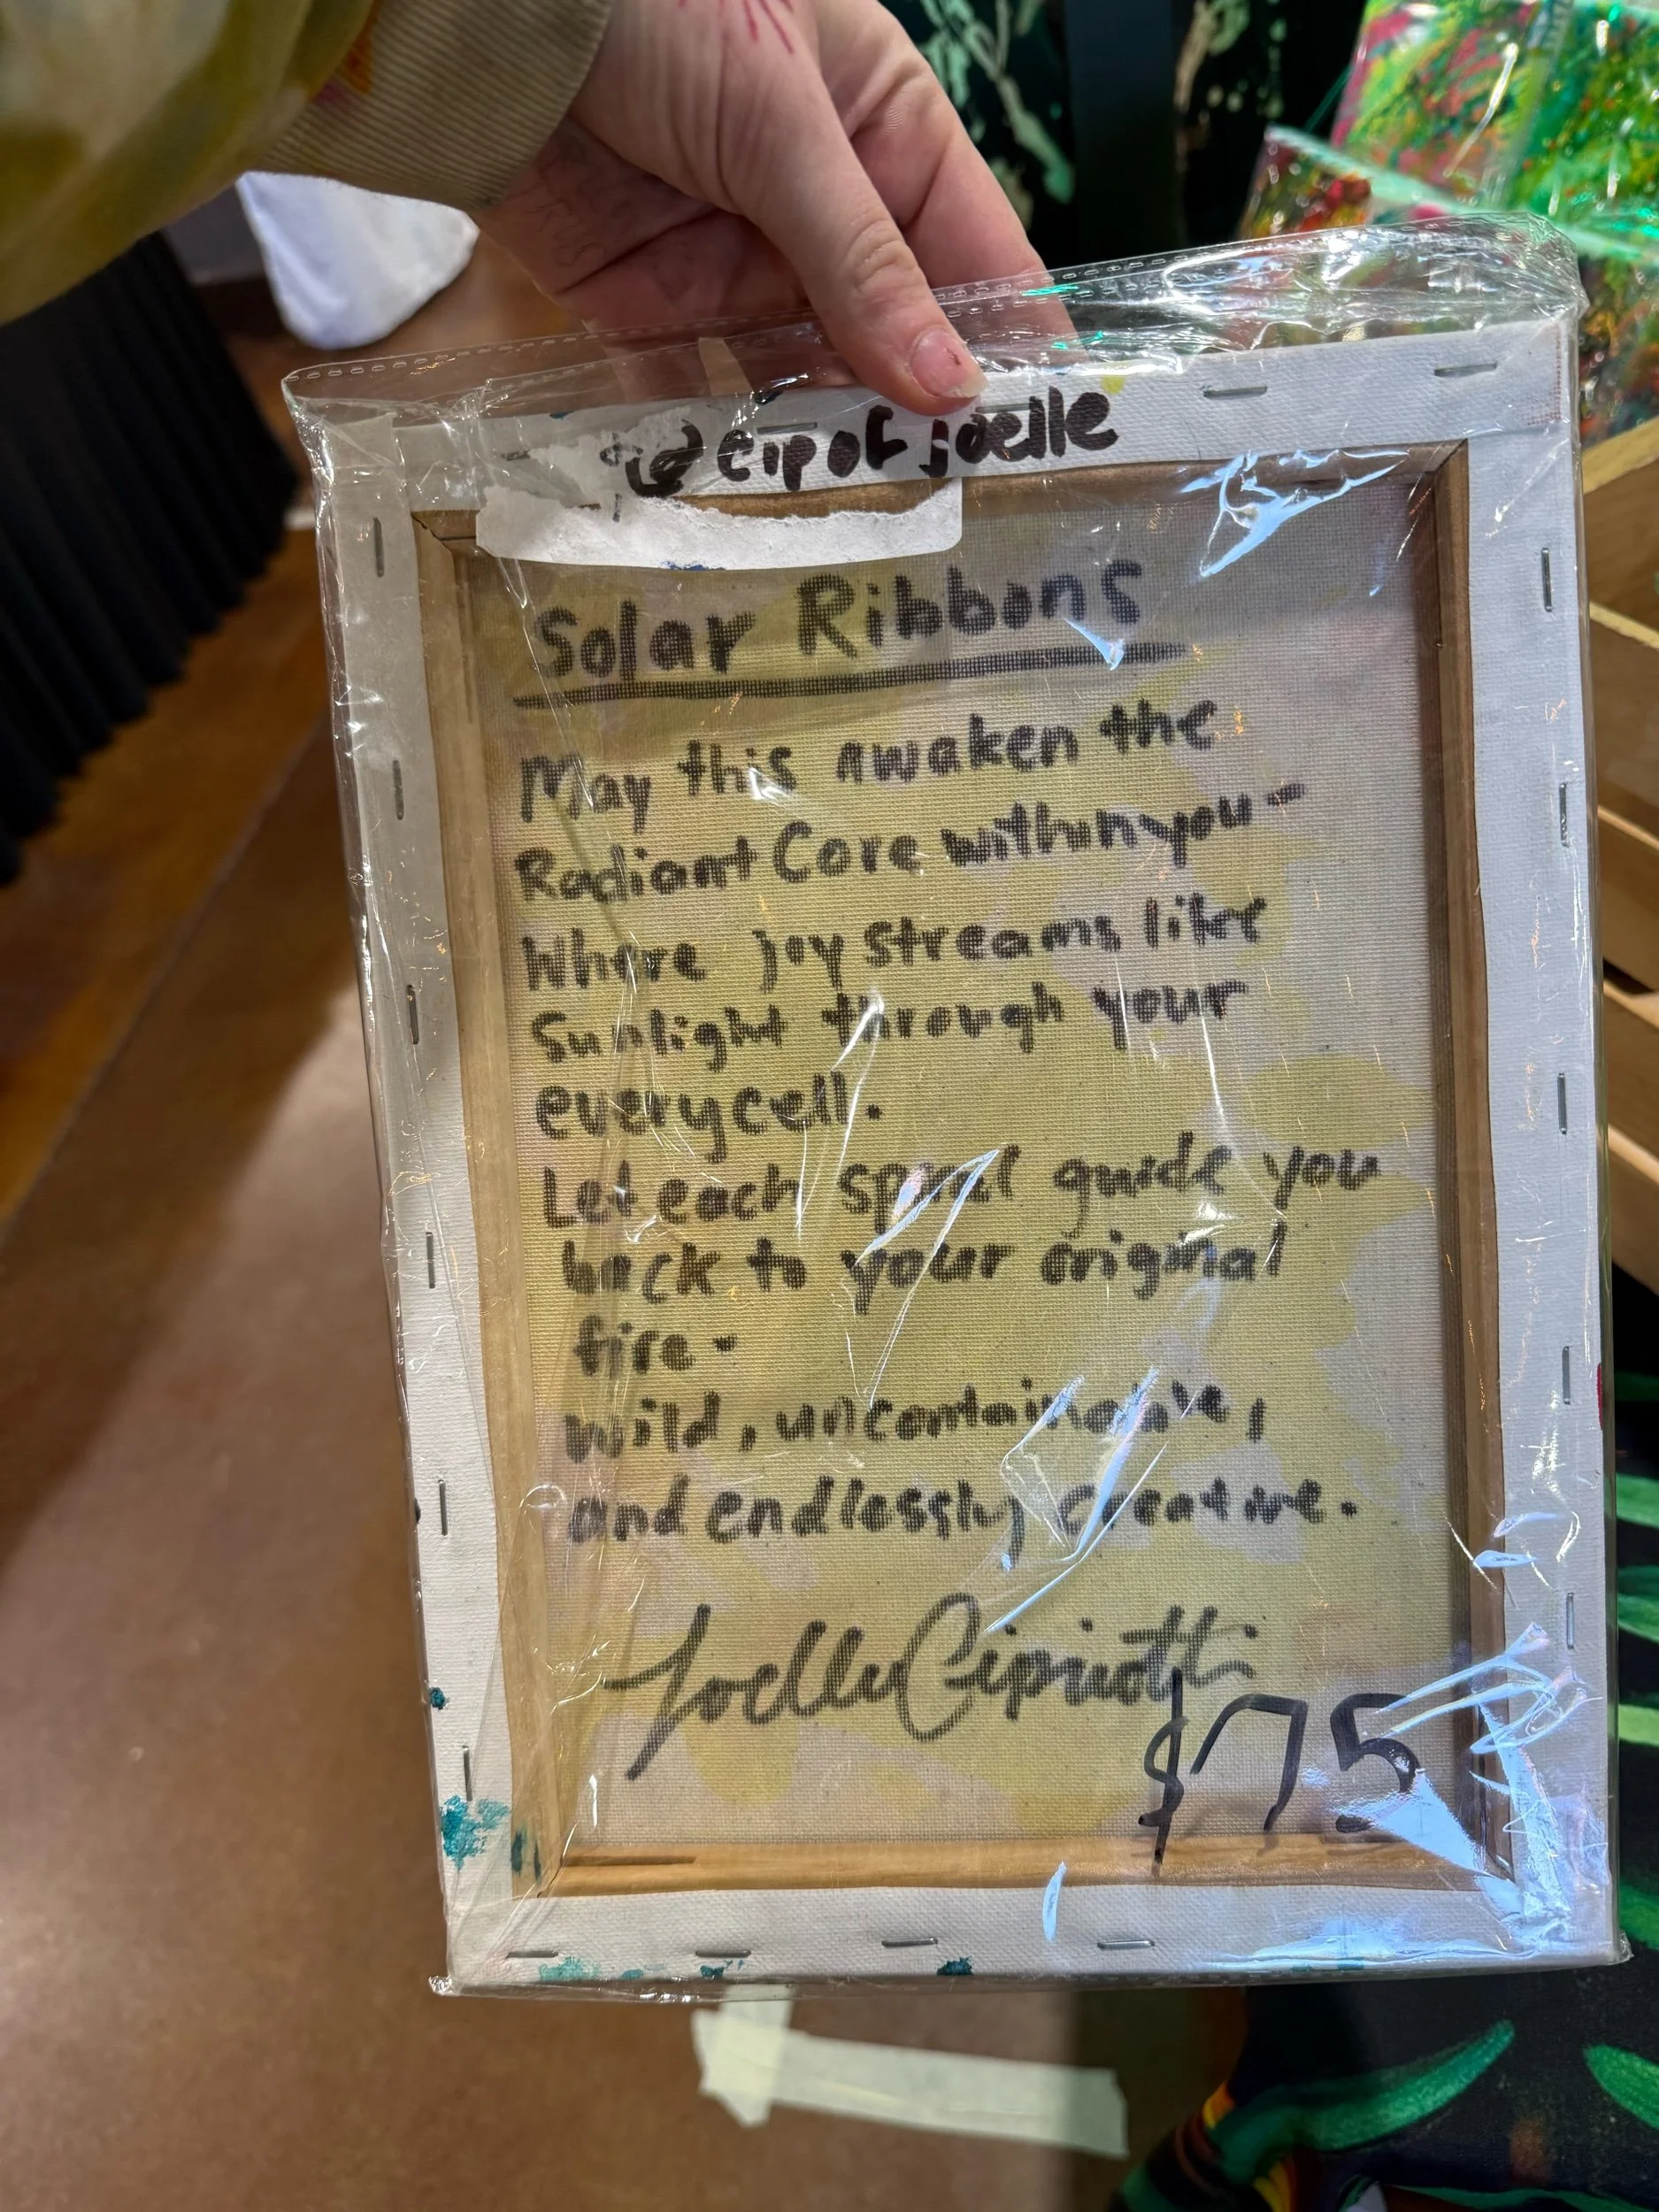 @cipofjoelle
Solar Ribbons
May this awaken the
Radiant Core within you-
Where joy streams like
Sunlight through your
every cell.
Let each spiral guide you
back to your original
fire-
wild, uncontainable,
and endlessly creative.
Joelle Cipriotti
$75